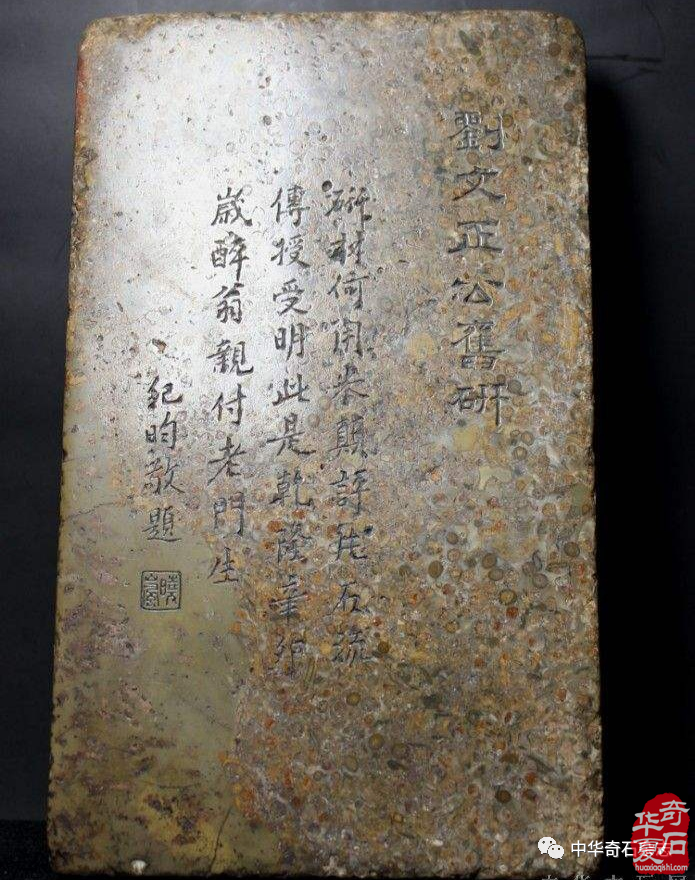 劉文正公舊研
研材何用米顛評片石流
傳授受明此是乾隆辛卯
歲醉翁親付老門生
紀昀敬題
曉嵐
中华奇石
奇石
华夏
huaxiaqishi.com